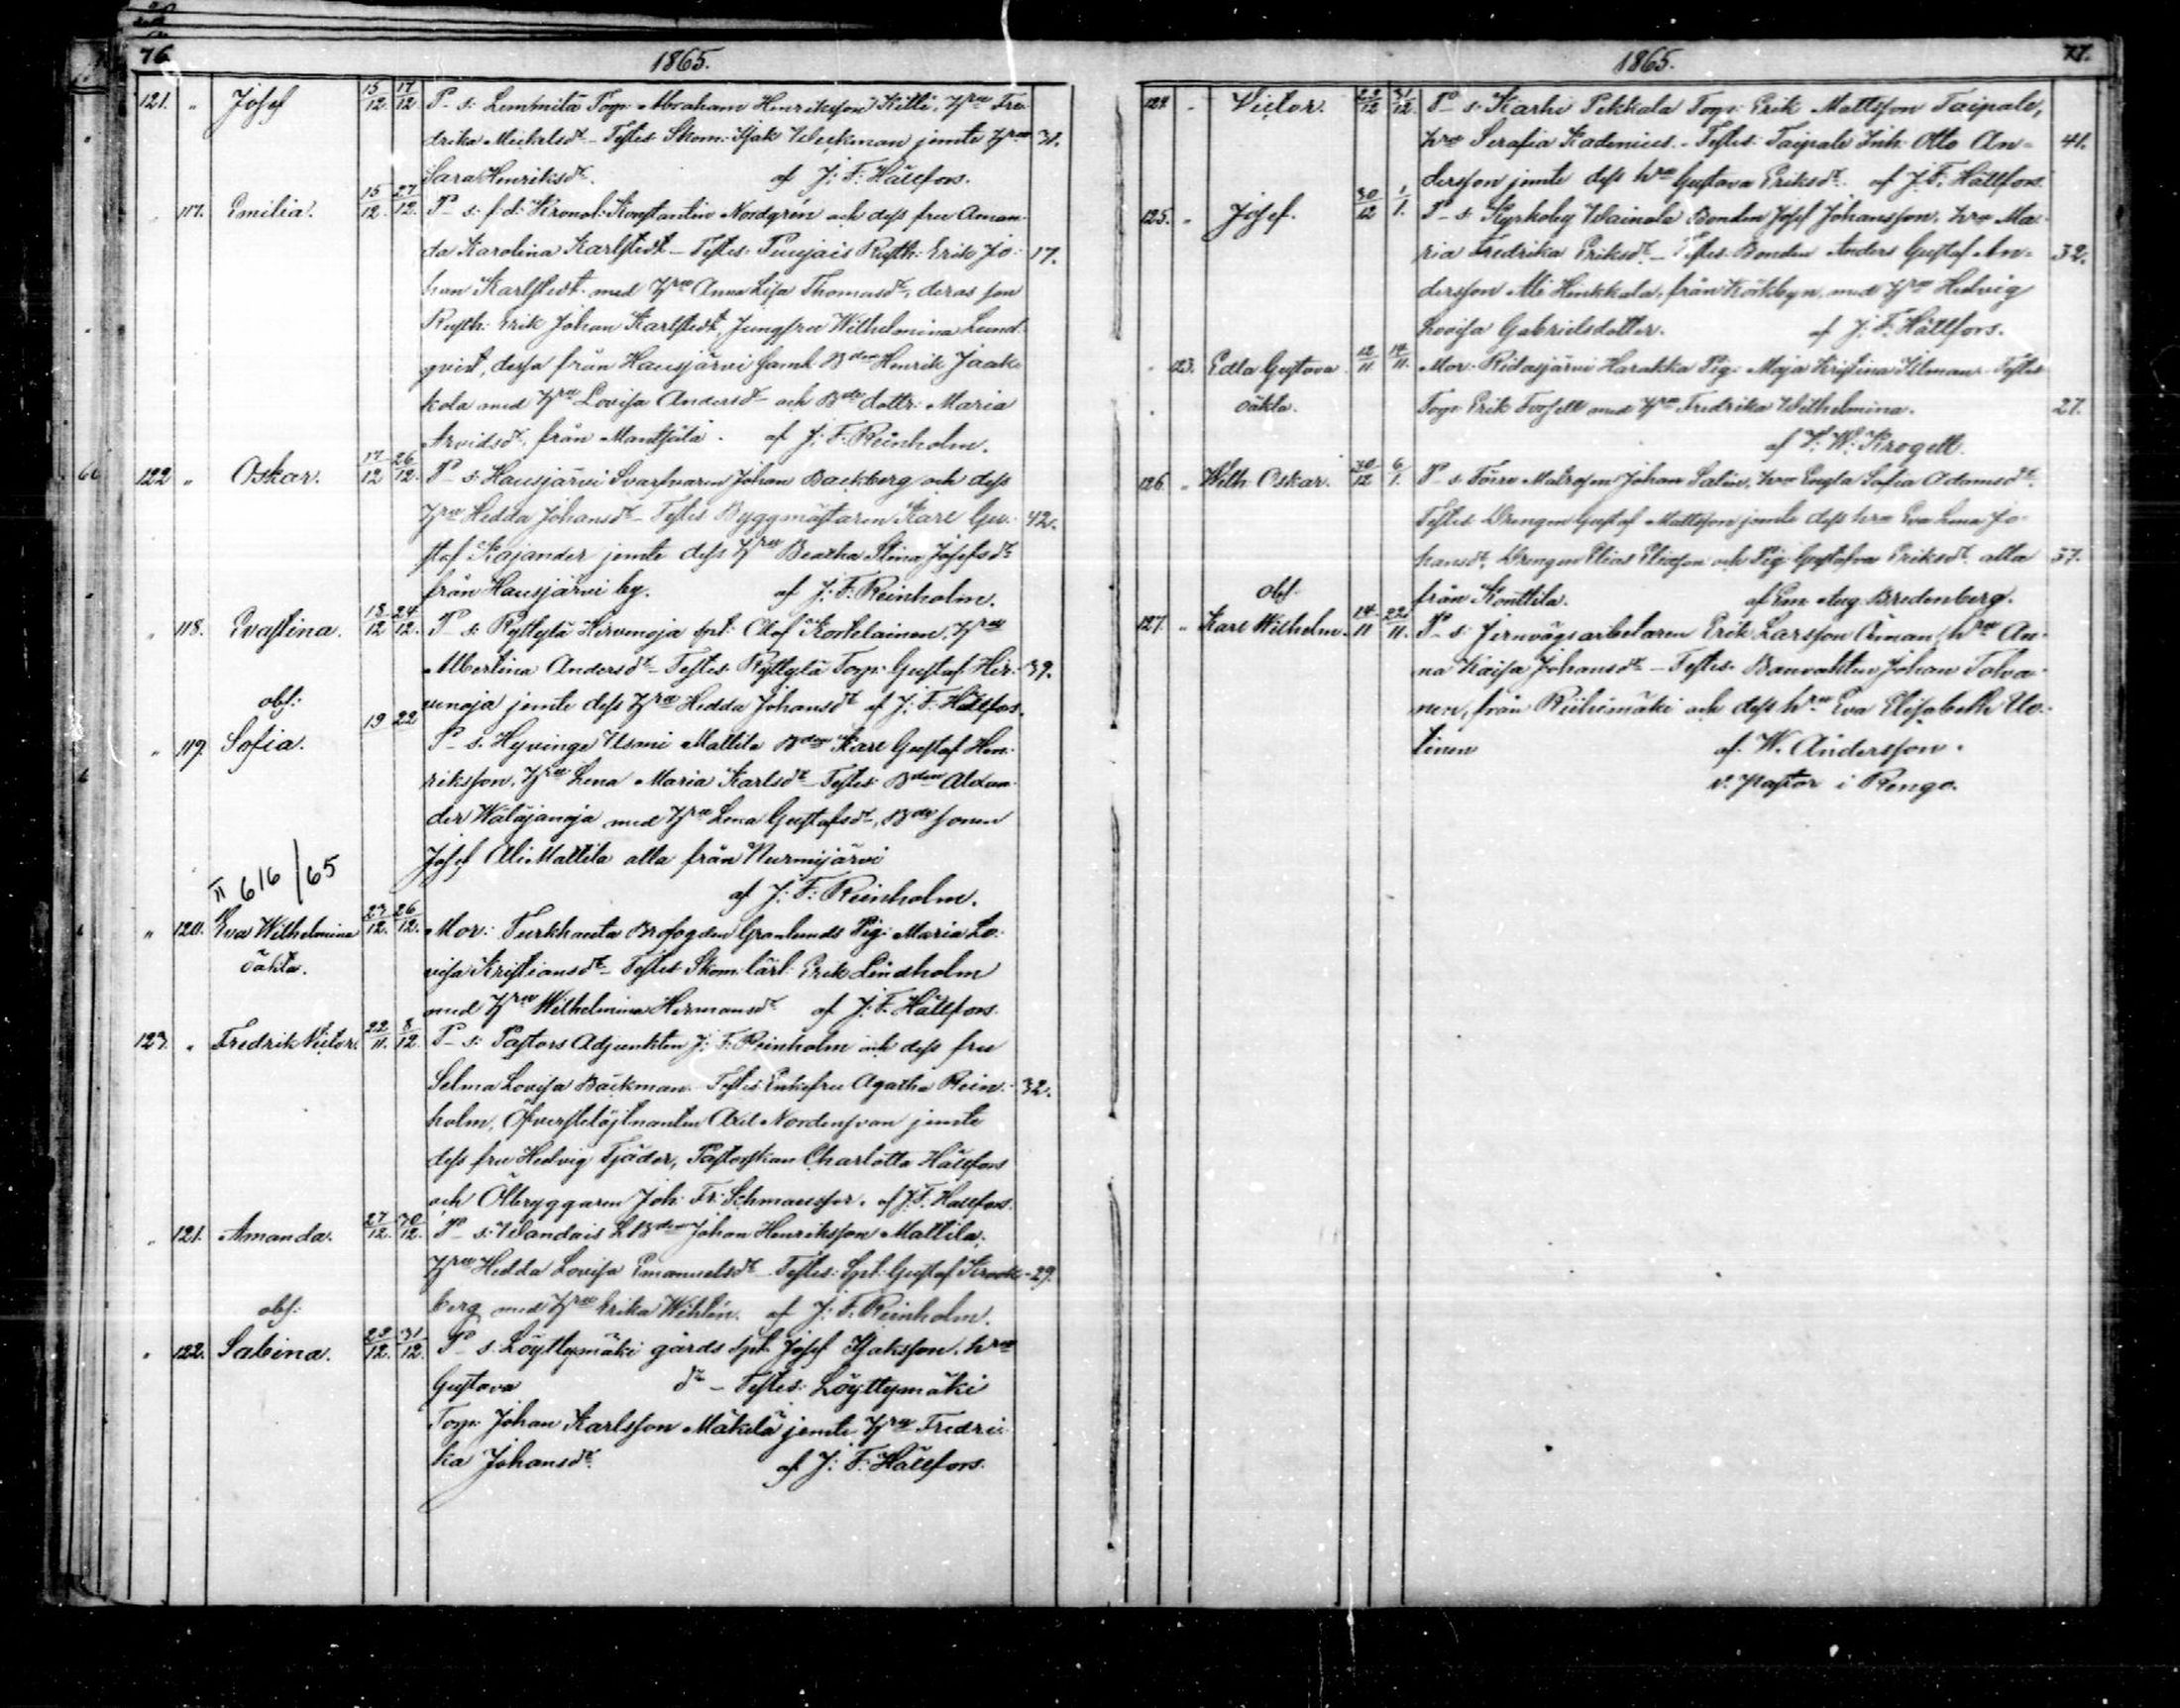 76.
1865.
121. " Josef 15/12 17/12 P- s: Lemmilä Torp: Abraham Henriksson Kilti, Hru Fre-
drika Mickelsdr - Testes: Skom: Isak Weckman jemte Hru 31.
Sara Henriksdr. af J: F: Hällfors.
" 117. Emilia. 15/12 27/12 P- s: f.d: Kronol: Konstantin Nordgrén och dess fru Aman-
da Karolina Karlstedt - Testes: Puujais Rusth: Erik Jo- 17.
han Karlstedt med Hru Anna Lisa Thomasdr, deras son
Rusth: Erik Johan Karlstedt, Jungfru Wilhelmina Lund-
qvist, dessa från Hausjärvi samt Bden Henrik Jaak-
kola med Hru Lovisa Andersdr och Bde dottr: Maria
Arvidsdr, från Mäntsälä. af J: F: Reinholm.
122 " Oskar. 17/12 26/12 P- s: Hausjärvi Svarfvaren Johan Backberg och dess
Hru Hedda Johansdr - Testes Byggmästaren Karl Gu- 42.
staf Kajander jemte dess Hru Beatha Stina Josefsdr
från Hausjärvi by. af J: F: Reinholm.
" 118. Evastina. 18/12 24/12 P- s: Ryttylä Hirvenoja spt: Olof Kostelainen, Hru
Albertina Andersdr - Testes: Ryttylä Torp: Gustaf Hir- 39.
venoja jemte dess Hru Hedda Johansdr af J: F: Hällfors.
obs:
" 119. Sofia. 19 22 P- s. Hyvinge Usmi Mattila Bden Karl Gustaf Hen-
riksson, Hru Lena Maria Karlsdr - Testes: Bden Alexan-
der Wäläjänoja med Hru Lena Gustafsdr, Bde sonen
Josef Ali Mattila alla från Nurmijärvi
af J: F: Reinholm.
II 616/65
" 120. Eva Wilhelmina 23/12. 26/12. Mor: Turkhauta Brofogden Granlunds Pig: Maria Lo-
oäkta. visa Kristiansdr - Testes: Skom: lärl: Erik Lindholm
med Hru Wilhelmina Hermansdr af J: F: Hällfors.
123. " Fredrik Victor. 22/11. 8/12 P- s: Pastors Adjunkten J: F: Reinholm och dess fru
Selma Lovisa Bäckman - Testes: Enkefru Agatha Rein- 32.
holm, Öfverstelöjtnanten Axel Nordensvan jemte
dess fru Hedvig Tjäder, Pastorskan Charlotta Hällfors
och Ölbryggaren Joh: Fr: Schmausser. af J: F: Hällfors.
" 121. Amanda. 27/12. 30/12. P- s: Wandais LBden Johan Henriksson Mattila,
Hru Hedda Lovisa Emanuelsdr - Testes: Spt: Gustaf Krook- 29.
berg med Hru Erika Wihlén. af J: F: Reinholm.
obs:
" 122. Sabina. 29/12. 31/12. P- s: Löyttymäki gårds spt: Josef Isaksson, hru
Gustava dr - Testes: Löyttymäki
Torp: Johan Karlsson Mäkelä jemte Hru Fredri-
ka Johansdr. af J: F: Hällfors.
1865.
77.
124. " Victor. 22/12 31/12. P- s: Karhi Pekkala Torp: Erik Mattsson Taipale,
hru Serafia Kadenius. - Testes: Taipale Inh: Otto An- 41.
dersson jemte dess hru Gustava Eriksdr. af J: F: Hällfors.
125. " Josef. 30/12 1/1. P- s: Kyrkoby Wainala Bonden Josef Johansson, hru Ma-
ria Fredrika Eriksdr. - Testes: Bonden Anders Gustaf An- 32.
dersson Ali Hinkkala, från Körkbyn, med Hru Hedvig
Lovisa Gabrielsdotter. af J: F: Hällfors.
" 123. Edla Gustava 12/11 14/11. Mor: Ridasjärvi Harakka Pig: Maja Kristina Ilman - Testes
oäkta. Torp: Erik Forsell med Hru Fredrika Wilhelmina. 27.
af F: W: Krogell.
126. " Wilh: Oskar. 30/12 6/1. P- s: Törrö Matrosen Johan Salin, hru Engla Sofia Adamsdr.
Testes: Drengen Gustaf Mattsson jemte dess hru Eva Lena Jo-
hansdr, Drengen Elias Eliasson och Pig: Gustafva Eriksdr. alla 37.
från Konttila. af Em: Aug. Bredenberg.
obs:
127. " Karl Wilhelm. 14/11 22/11. P- s: Jernvägsarbetaren Erik Larsson Åman, hru An-
na Kaisa Johansdr - Testes: Banvakten Johan Tolva-
nen, från Riihimäki och dess hru Eva Elisabeth Uo-
tinen af. W. Andersson.
v. Pastor i Rengo.